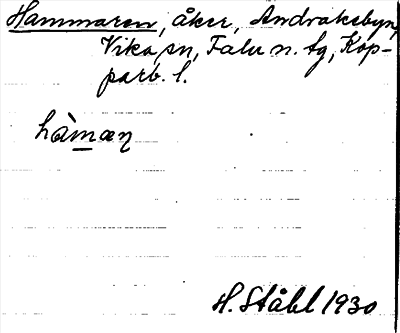 Hammaren, åker, Andraksbyn,
Vika sn, Falu n. tg, Kop-
parb. l.
hàmæn
H. Ståhl 1930